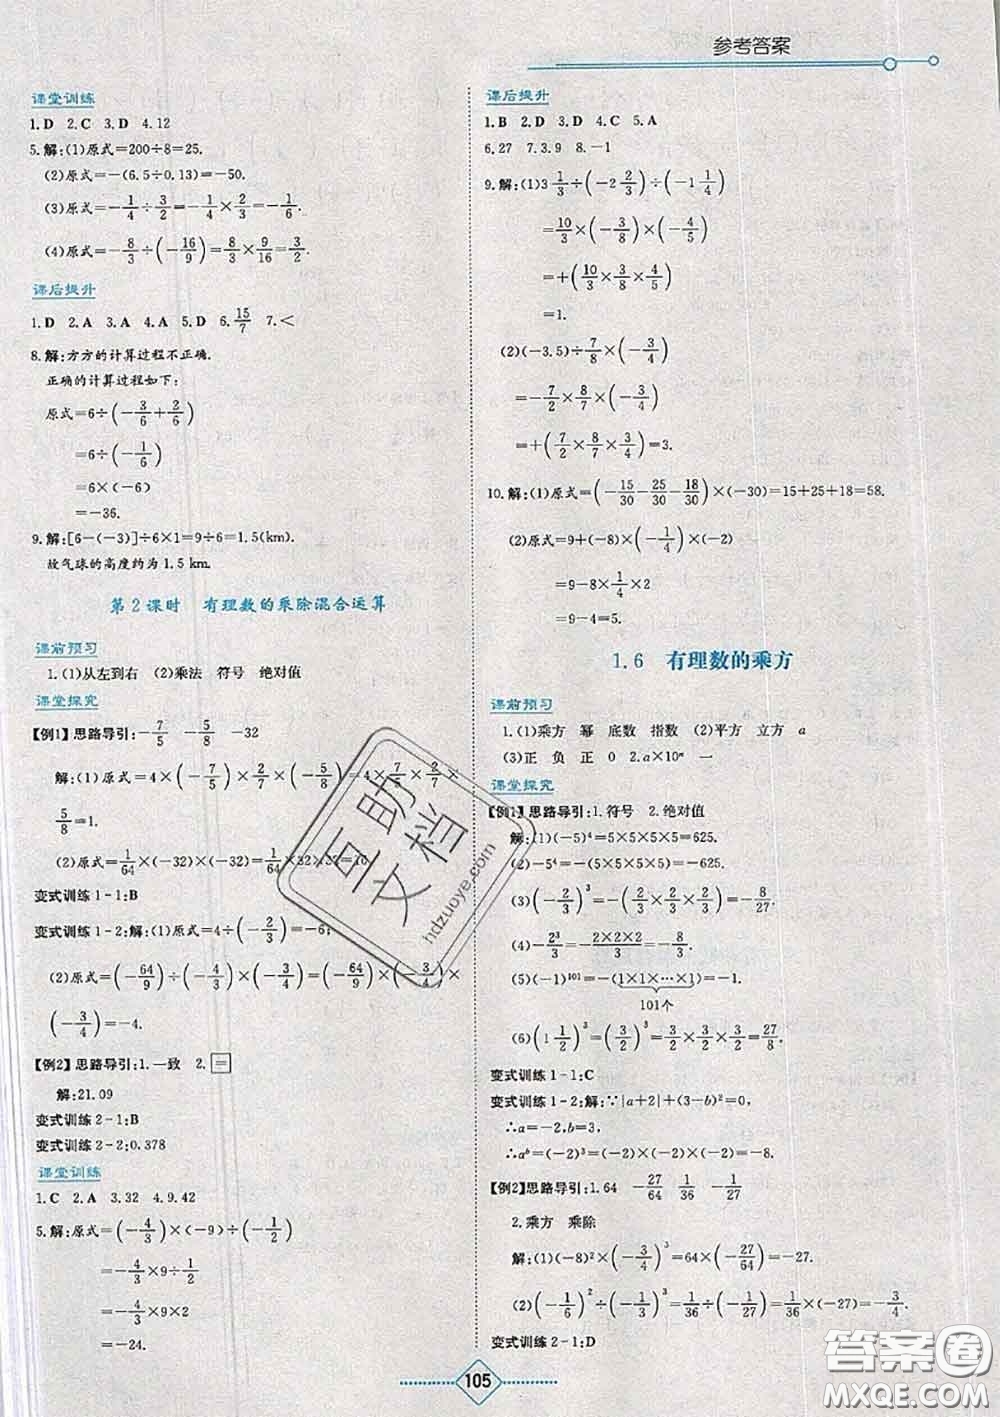 参考答案
课堂训练
1.D 2.C 3.D 4.12
5.解:(1)原式=200÷8=25.
(2)原式=-(6.5÷0.13)=-50.
(3)原式=-1/4÷3/2=-1/4×2/3=-1/6.
(4)原式=-8/3÷(-16/9)=8/3×9/16=3/2.
课后提升
1.D 2.A 3.A 4.A 5.D 6.15/7 7.<
8.解:方方的计算过程不正确.
正确的计算过程如下:
原式=6÷(-3/6+2/6)
=6÷(-1/6)
=6×(-6)
=-36.
9.解:[6-(-3)]÷6×1=9÷6=1.5(km).
故气球的高度约为1.5 km.
第2课时 有理数的乘除混合运算
课前预习
1.(1)从左到右 (2)乘法 符号 绝对值
课堂探究
【例1】思路导引:-7/5 -5/8 -32
解:(1)原式=4×(-7/5)×2/7×(-5/8)=4×7/5×2/7×
5/8=1.
(2)原式=1/64×(-32)×(-32)=1/64×32×32=16.
变式训练1-1:B
变式训练1-2:解:(1)原式=4÷(-2/3)=-6;
(2)原式=(-64/9)÷(-4/3)÷(-4/3)=(-64/9)×(-3/4)×
(-3/4)=-4.
【例2】思路导引:1.一致 2.=
解:21.09
变式训练2-1:B
变式训练2-2:0.378
课堂训练
1.C 2.A 3.32 4.9.42
5.解:原式=(-4/3)×(-9)÷(-1/2)
=-4/3×9÷1/2
=-4/3×9×2
=-24.
课后提升
1.B 2.D 3.D 4.C 5.A
6.27 7.3.9 8.-1
9.解:(1)3 1/3÷(-2 2/3)÷(-1 1/4)
=10/3×(-3/8)×(-4/5)
=+(10/3×3/8×4/5)
=1.
(2)(-3.5)÷7/8×(-3/4)
=-7/2×8/7×(-3/4)
=+(7/2×8/7×3/4)=3.
10.解:(1)原式=(-15/30-25/30-18/30)×(-30)=15+25+18=58.
(2)原式=9+(-8)×(-1/4)×(-2)
=9-8×1/4×2
=9-4=5.
1.6 有理数的乘方
课前预习
1.(1)乘方 幂 底数 指数 (2)平方 立方 a
(3)正 负 正 0 2.a×10ⁿ 一
课堂探究
【例1】思路导引:1.符号 2.绝对值
解:(1)(-5)⁴=5×5×5×5=625.
(2)-5⁴=-(5×5×5×5)=-625.
(3)(-2/3)³=-2/3×2/3×2/3=-8/27.
(4)-2³/3=-2×2×2/3=-8/3.
(5)(-1)¹⁰¹=-(1×1×…×1)=-1.
101个
(6)(1 1/2)³=(3/2)³=3/2×3/2×3/2=27/8.
变式训练1-1:C
变式训练1-2:解:∵|a+2|+(3-b)²=0,
∴a=-2,b=3,
∴aᵇ=(-2)³=(-2)×(-2)×(-2)=-8.
【例2】思路导引:1.64 -27/64 1/36 -1/27
2.乘方 乘除
解:(1)(-8)²×(-3/4)³=64×(-27/64)=-27.
(2)(-1/6)²÷(-1/3)³=1/36÷(-1/27)=1/36×(-27)=-3/4.
变式训练2-1:D
105
互助文档
hdzuoye.com
答案圈
MXQE.COM